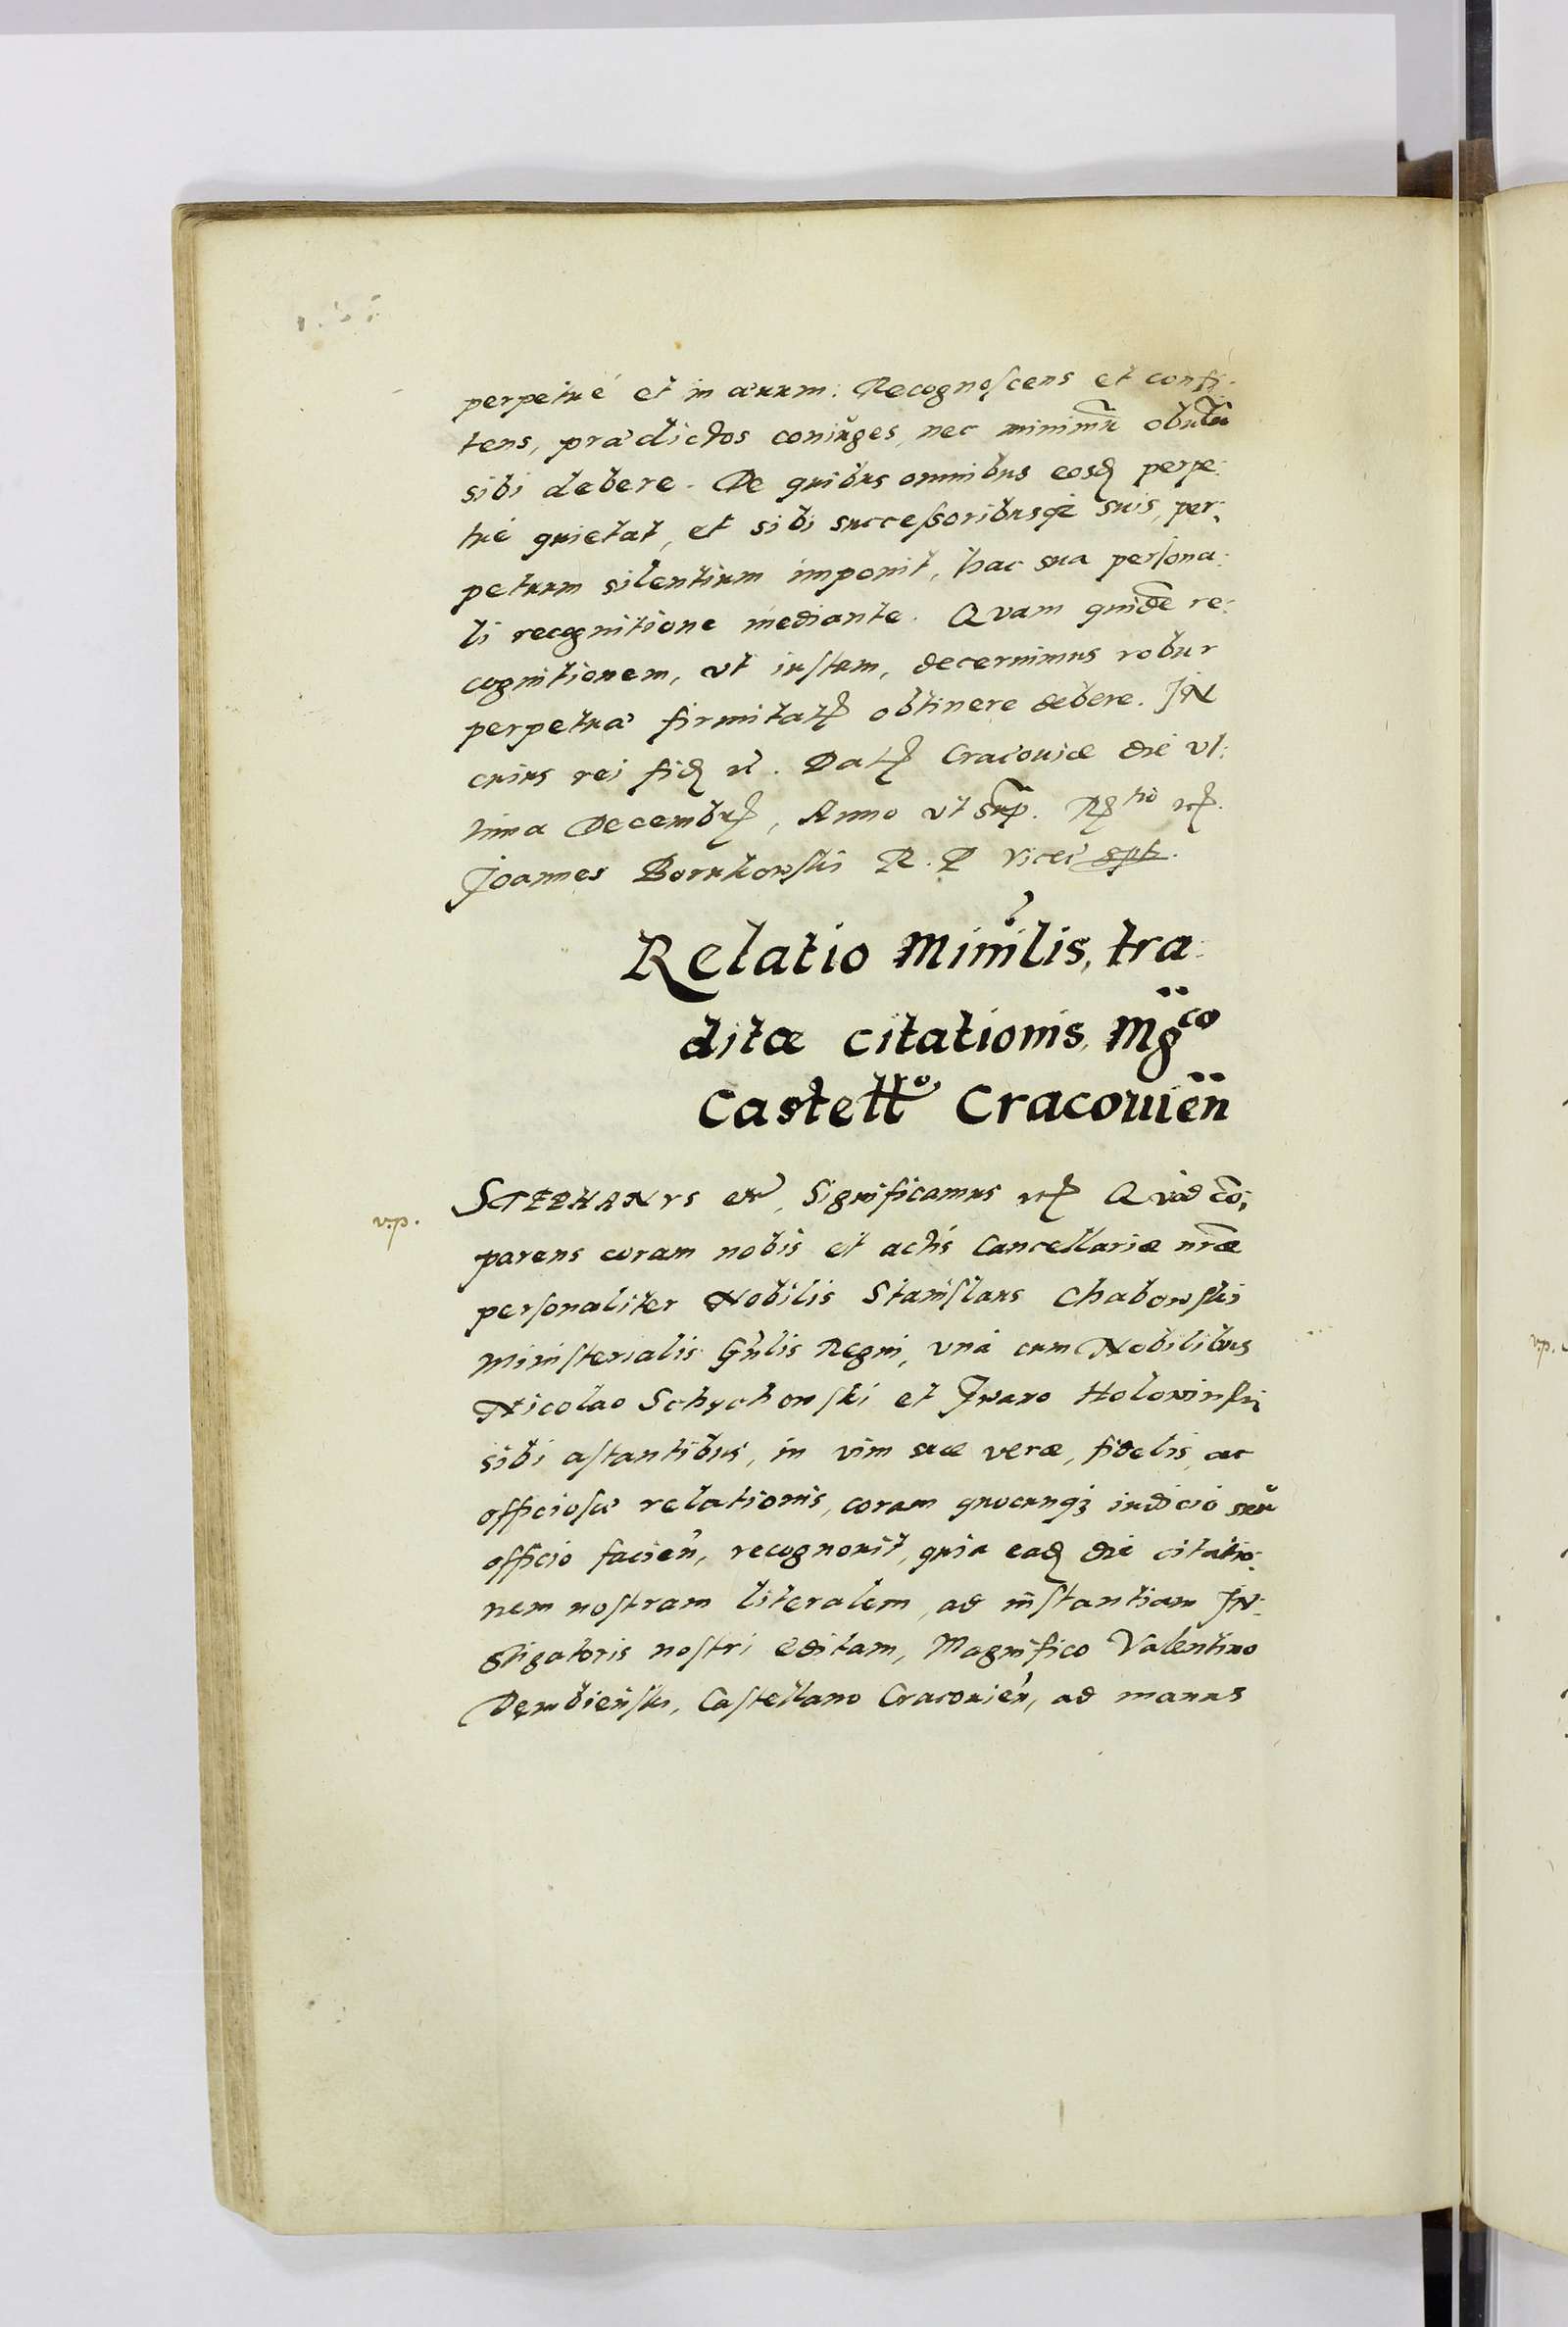 perpetuè et in æuum. Recognoscens et confi-
tens, prædictos coniuges, nec minimũ obulũ
sibi debere. De quibus omnibus eosd perpe-
tuè quietat, et sibi successoribusq́ suis, per-
petuum silentium imponit, hac sua persona-
li recognitione mediante. Quam quidẽ re-
cognitionem, vt iustam, decernimus robur
perpetuæ firmitatꝭ obtinere debere. IN
cuius rei fid ꝛc. Datꝭ Cracouiæ die vl-
tima Decembrꝭ, Anno vt sup̃.
Joannes Borukowski R. P. Vicec
Relatio Minīlis, tra-
ditæ citationis, Mgco
Castell̃o Cracouien̄
v.p.
STEPHANVS etc̃, Significamus ꝛcꝭ Quòd cõ-
parens coram nobis et actis Cancellariæ nr̃æ
personaliter Nobilis Stanislaus Chabowski
Ministerialis Gñlis Regni, vnà cum Nobilibus
Nicolao Schychowski et Iwano Holowinski
sibi astantibus, in vim suæ veræ, fidelis, ac
officiosæ relationis, coram quocunqꝫ iudicio seu
officio facien̄, recognouit, quia ead die citatio-
nem nostram literalem, ad instantiam IN-
stigatoris nostri editam, Magnifico Valentino
Dembienski, Castellano Cracouien̄, ad manus
v.p.